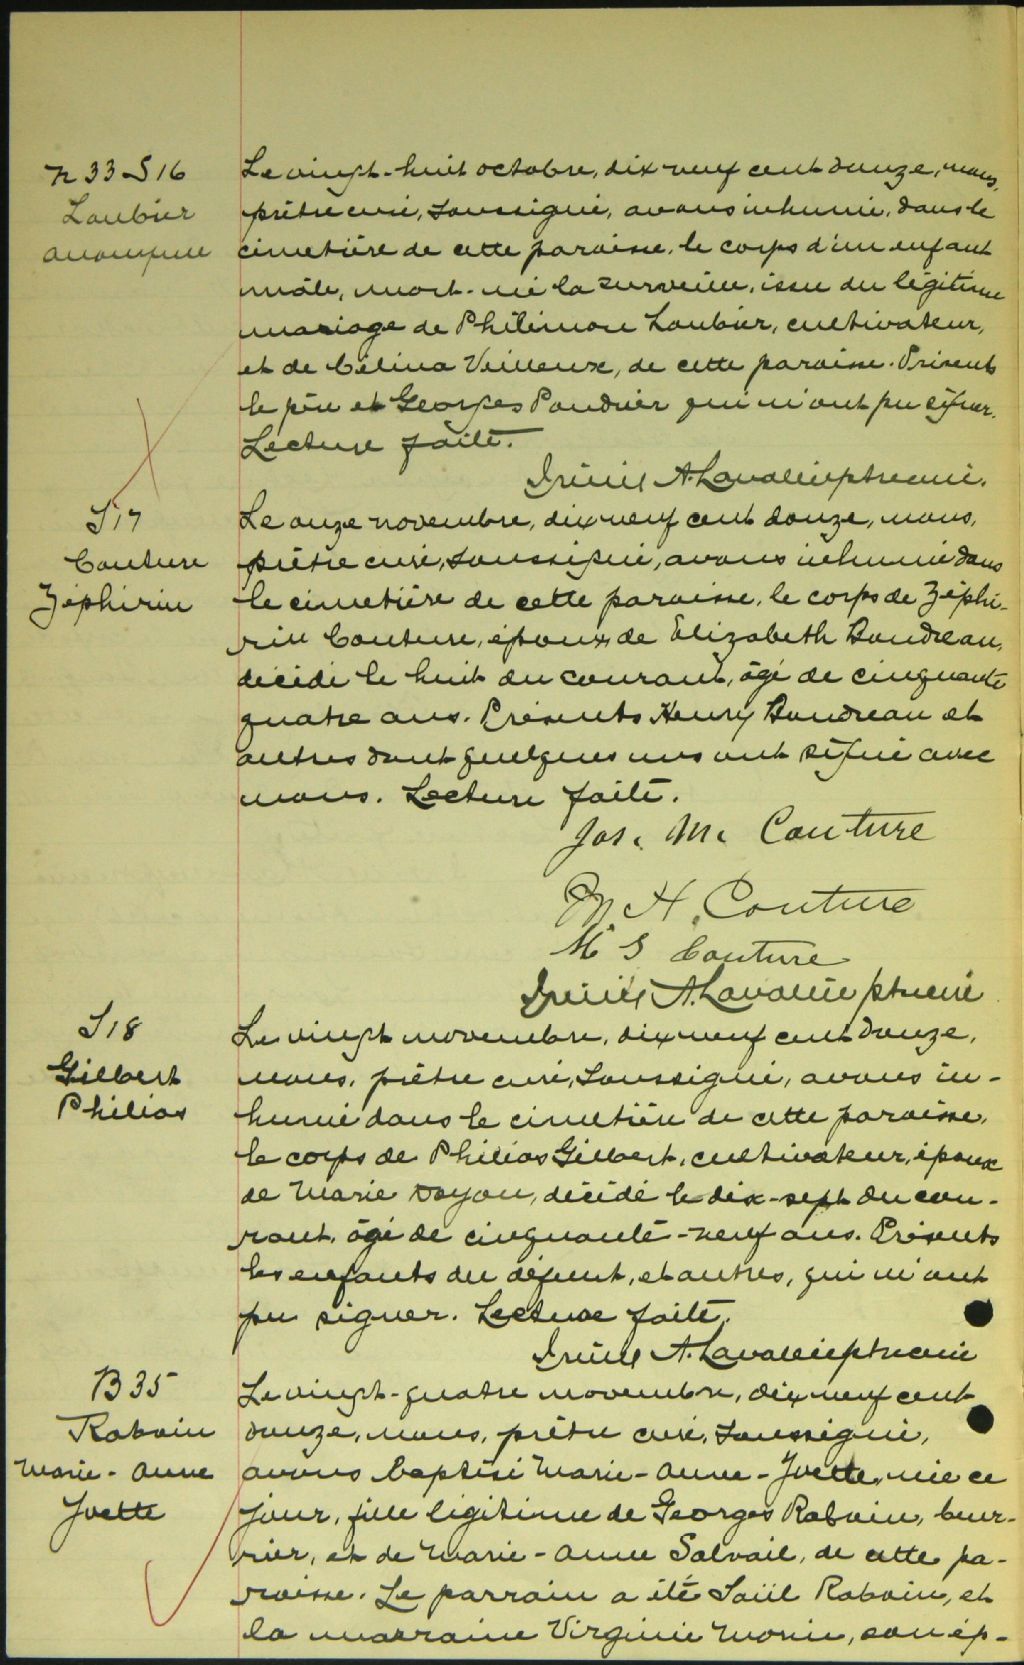 N 33 S 16
Loubier
anonyme
Le vingt-huit octobre, dix neuf cent douze, nous,
prêtre curé, soussigné, avons inhumé, dans le
cimetière de cette paroisse, le corps d'un enfant
mâle, mort-né la surveille, issu du légitime
mariage de Philémon Loubier, cultivateur,
et de Célina Veilleux, de cette paroisse. Présents
le père et Georges Poudrier qui n'ont pu signer.
Lecture faite.
Irénée A. Lavallée ptre curé.
S 17
Couture
Zéphirin
Le onze novembre, dix neuf cent douze, nous,
prêtre curé, soussigné, avons inhumé dans
le cimetière de cette paroisse, le corps de Zéphi-
rin Couture, époux de Elizabeth Boudreau,
décédé le huit du courant, âgé de cinquante
quatre ans. Présents Henry Boudreau et
autres dont quelques uns ont signé avec
nous. Lecture faite.
Jos. M. Couture
M H. Couture
M S Couture
Irénée A. Lavallée ptre curé
S 18
Gilbert
Philias
Le vingt novembre, dix neuf cent douze,
nous, prêtre curé, soussigné, avons in-
humé dans le cimetière de cette paroisse,
le corps de Philias Gilbert, cultivateur, époux
de Marie Doyon, décédé le dix-sept du cou-
rant, âgé de cinquante-neuf ans. Présents
les enfants du défunt, et autres, qui n'ont
pu signer. Lecture faite.
Irénée A. Lavallée ptre curé
B 35
Robain
Marie-Anne
Yvette
Le vingt-quatre novembre, dix neuf cent
douze, nous, prêtre curé, soussigné,
avons baptisé Marie-Anne-Yvette, née ce
jour, fille légitime de Georges Robain, beur-
rier, et de Marie-Anne Salvail, de cette pa-
roisse. Le parrain a été Saül Robain, et
la marraine Virginie Morin, son ép-